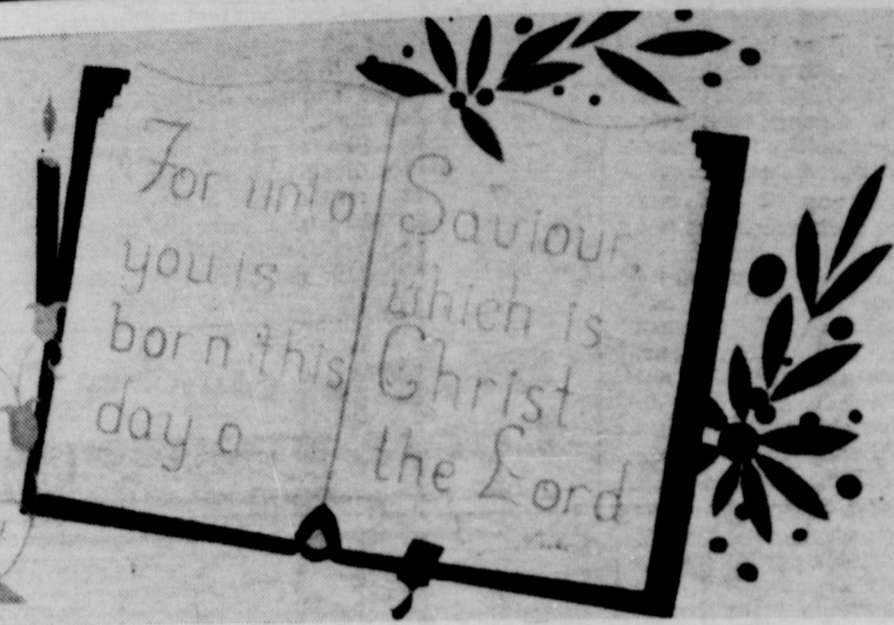 For unto
you is
born this
day a
Saviour,
which is
Christ
the Lord